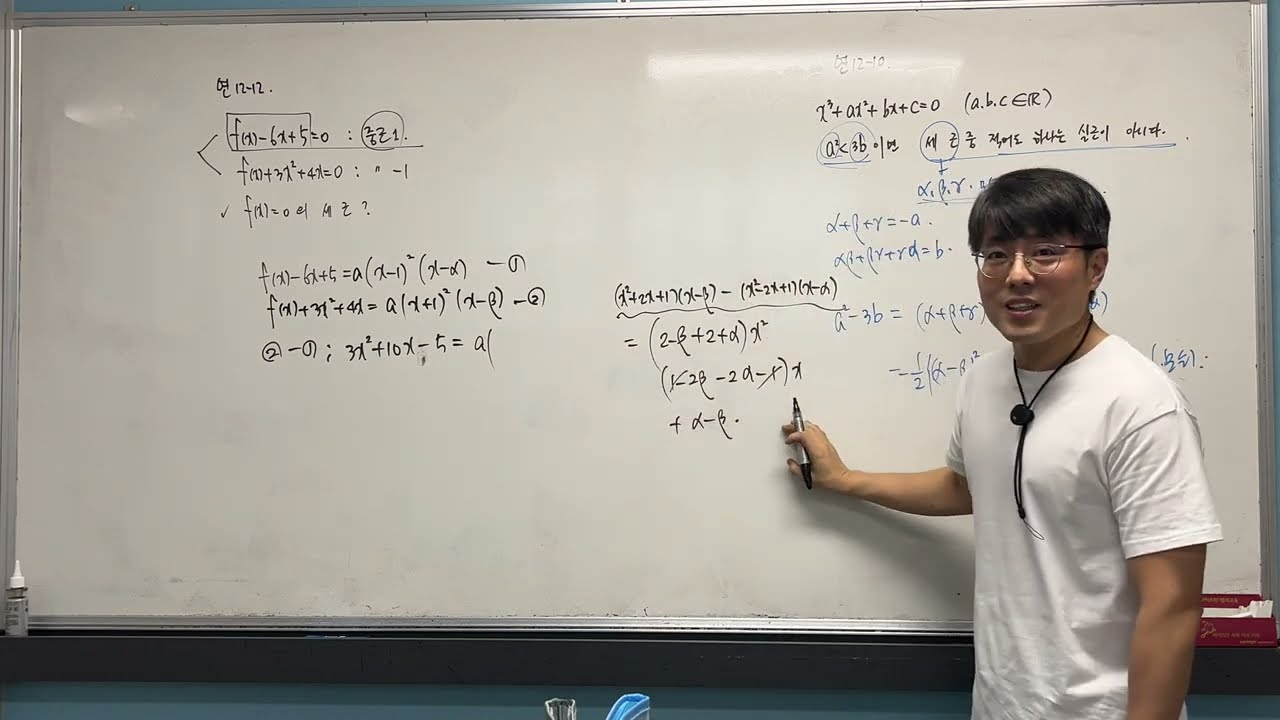 연 12-12.
f(x)-6x+5=0 : 중근 1.
f(x)+3x²+4x=0 : 〃 -1
✓ f(x)=0 의 세 근?
f(x)-6x+5=a(x-1)²(x-α) -①
f(x)+3x²+4x= a(x+1)²(x-β) -②
②-① ; 3x²+10x-5 = a(
(x²+2x+1)(x-β) - (x²-2x+1)(x-α)
= (2-β+2+α)x²
(1-2β-2α-1)x
+ α-β.
연 12-10.
x³+ax²+bx+c=0 (a.b.c∈ℝ)
a²<3b 이면 세 근 중 적어도 하나는 실근이 아니다.
α,β,γ.
α+β+γ=-a.
αβ+βγ+γα=b.
a²-3b = (α+β+γ)
=-1/2{(α-β)²